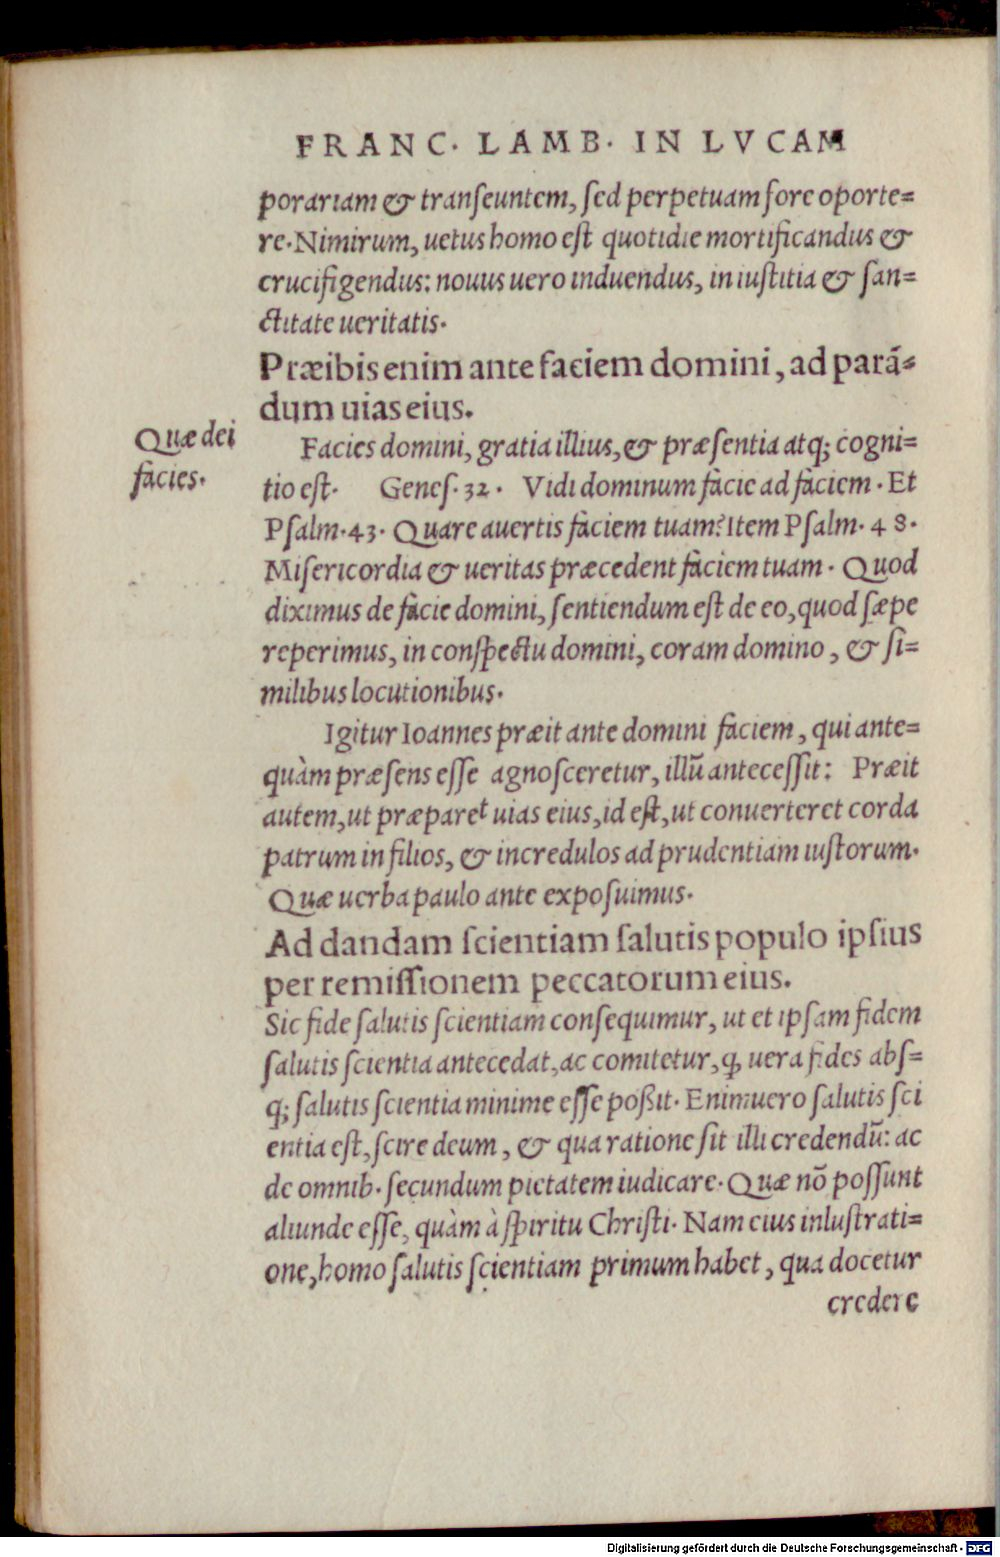 FRANC. LAMB. IN LVCAM
porariam & transeuntem, sed perpetuam fore oporte=
re. Nimirum, uetus homo est quotidie mortificandus &
crucifigendus: nouus uero induendus, in iustitia & san=
ctitate ueritatis.
Præibis enim ante faciem domini, ad parā=
dum uias eius.
Quæ dei
facies.
Facies domini, gratia illius, & præsentia atq; cogni=
tio est. Genes. 32. Vidi dominum facie ad faciem. Et
Psalm. 43. Quare auertis faciem tuam? Item Psalm. 48.
Misericordia & ueritas præcedent faciem tuam. Quod
diximus de facie domini, sentiendum est de eo, quod sæpe
reperimus, in conspectu domini, coram domino, & si=
milibus locutionibus.
Igitur Ioannes præit ante domini faciem, qui ante=
quàm præsens esse agnosceretur, illū antecessit: Præit
autem, ut præparet uias eius, id est, ut conuerteret corda
patrum in filios, & incredulos ad prudentiam iustorum.
Quæ uerba paulo ante exposuimus.
Ad dandam scientiam salutis populo ipsius
per remissionem peccatorum eius.
Sic fide salutis scientiam consequimur, ut et ipsam fidem
salutis scientia antecedat, ac comitetur, q, uera fides abs=
q; salutis scientia minime esse poßit. Enimuero salutis sci
entia est, scire deum, & qua ratione sit illi credendū: ac
de omnib. secundum pietatem iudicare. Quæ nō possunt
aliunde esse, quàm à spiritu Christi. Nam eius inlustrati=
one, homo salutis scientiam primum habet, qua docetur
credere
Digitalisierung gefördert durch die Deutsche Forschungsgemeinschaft - DFG